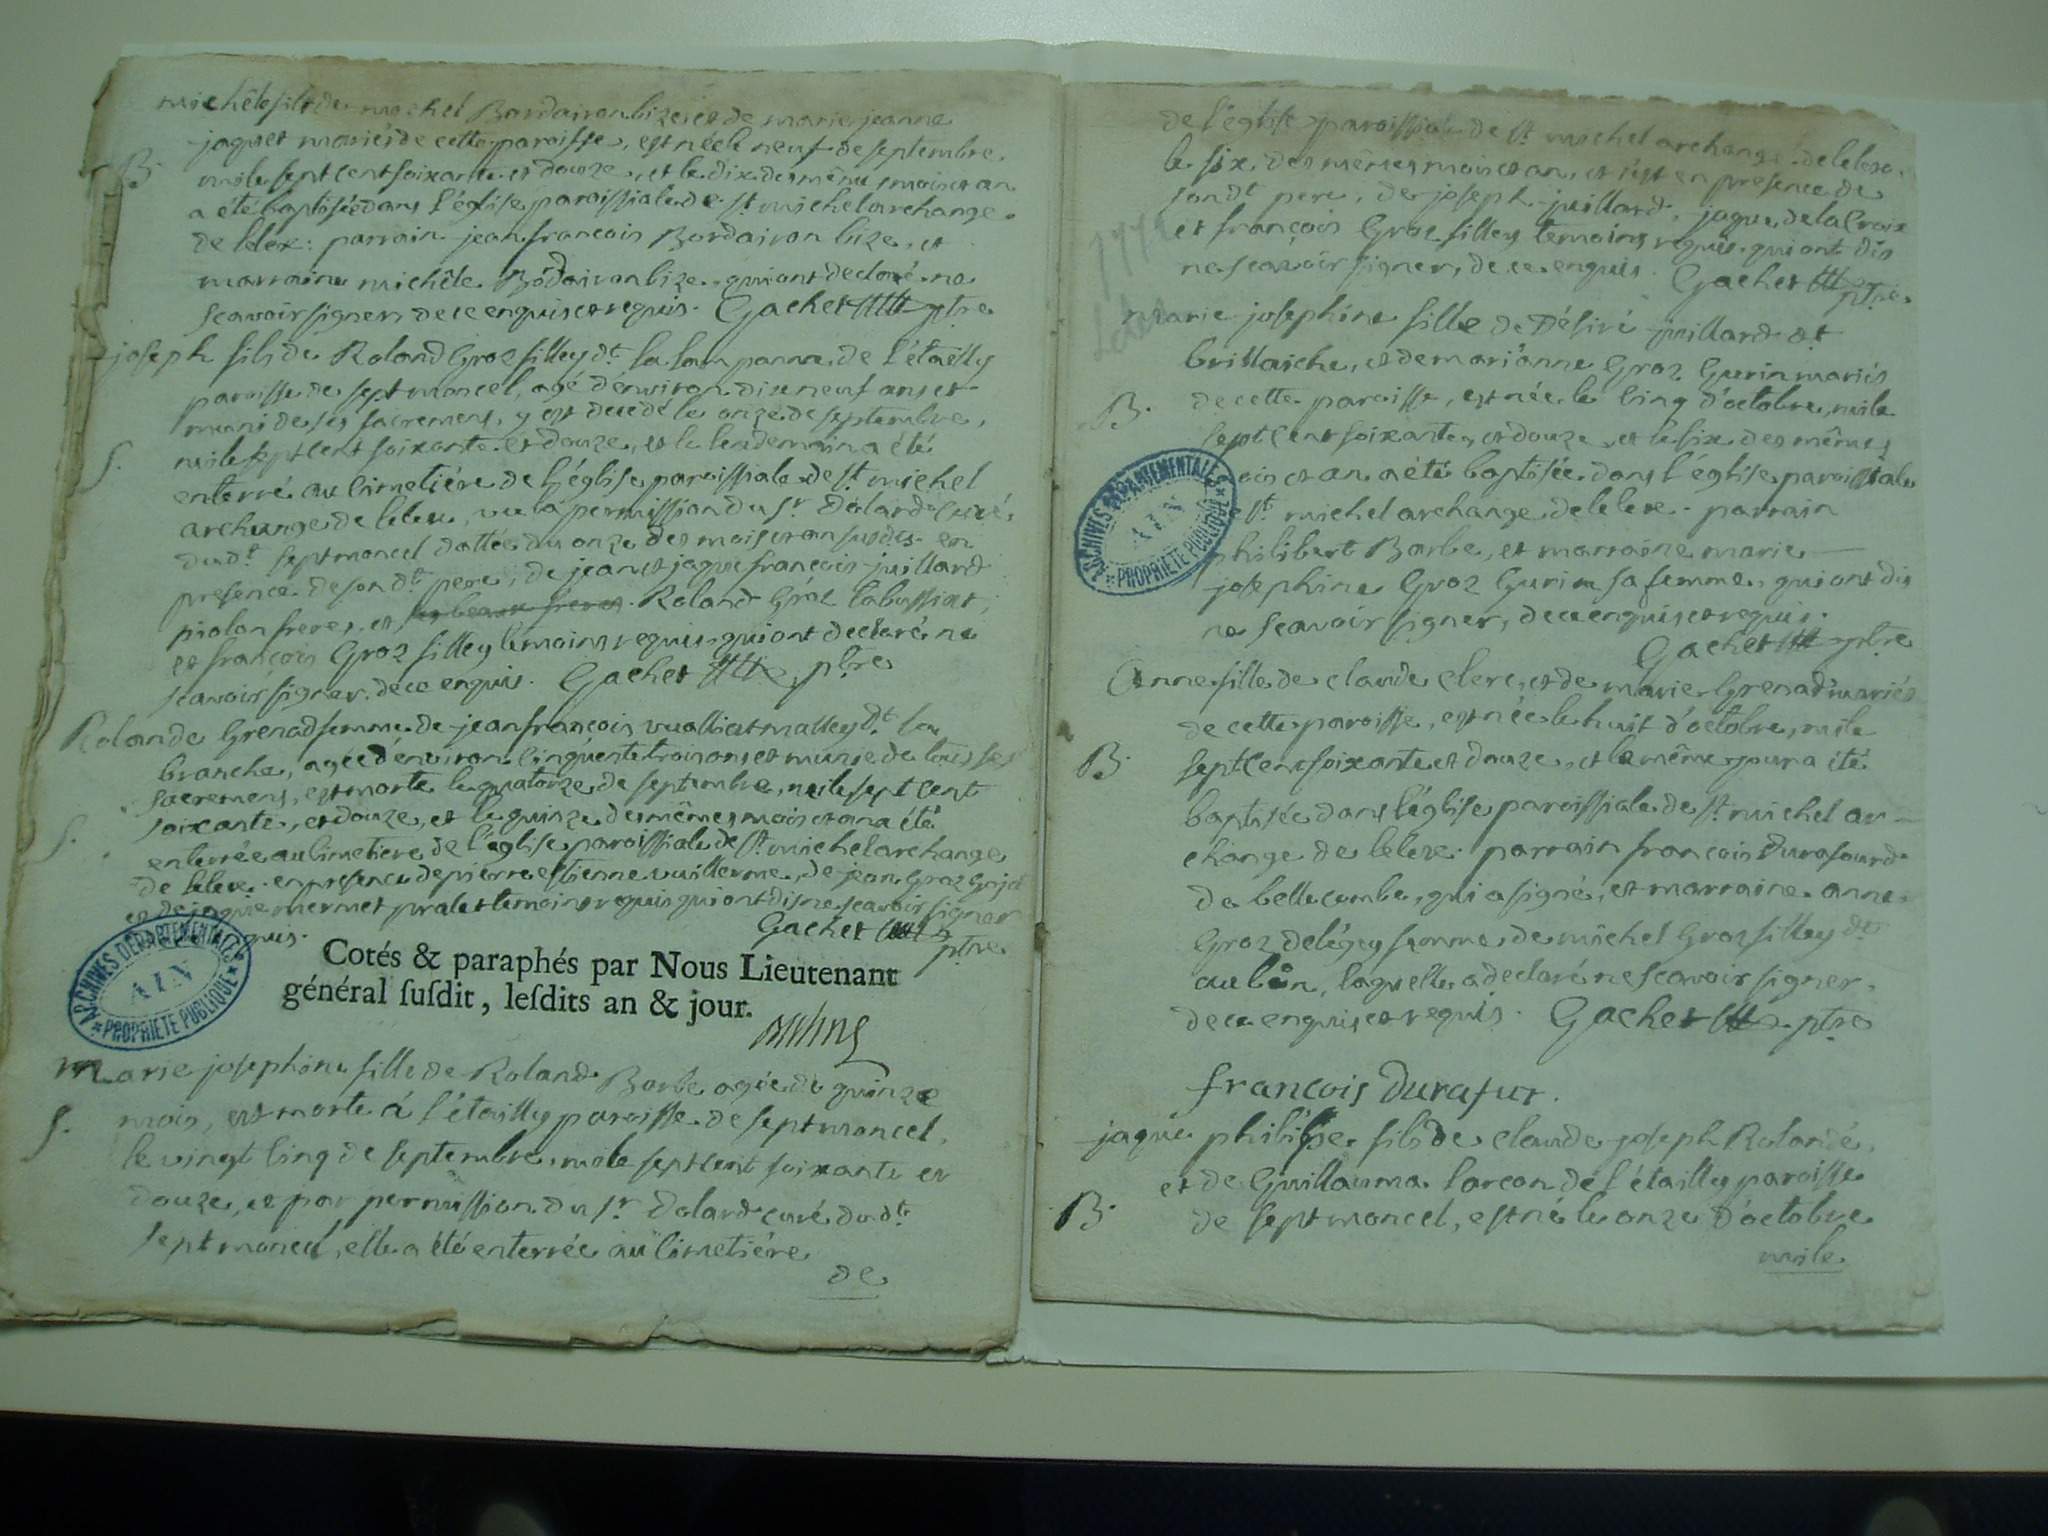 michel fils de michel Bordairon bize et de marie jeanne
jaquet mariés de cette paroisse, est né le neuf de septembre
B. mile sept cent soixante et douze, et le dix des même mois et an
a été baptisé dans l'église paroissiale de St michel archange
de lelex: parrain jean françois Bordairon bize, et
marraine michéle Bordaironbize, qui ont declaré ne
scavoir signer, de ce enquis et requis. Gachet ptre
joseph fils de Roland Groz filley dt la lampanne de l'étailly
paroisse de septmoncel, agé d'environ dix neuf ans et
muni de ses sacremens, y est decedé le onze de septembre,
S. mile sept cent soixante et douze, et le lendemain a été
enterré au cimetiére de l'église paroissiale de St michel
archange de lelex, vu la permission du Sr Dolard Curé,
dudt septmoncel dattée du onze des mois et an susdts en
presence de sondt pere, de jean et jaque françois juillard
piolon freres, et Roland Groz labussiat,
et françois Groz filley temoins requis, qui ont declaré ne
scavoir signer de ce enquis. Gachet ptre
Rolande Grenad femme de jean françois vualliat malley dt la
branche, agée d'environ cinquente trois ans et munie de tous ses
sacremens, est morte le quatorze de septembre, mile sept cent
soixante, et douze, et le quinze des mêmes mois et an a été
S. enterrée au cimetiere de l'église paroissiale de St michel archange
de lelex. en presence de pierre estienne vuillerme, de jean Groz
et de jaque mermet pralet temoins requis qui ont dis ne scavoir signer
quis. Gachet ptre
ARCHIVES DÉPARTEMENTALES
AIN
PROPRIÉTÉ PUBLIQUE
Cotés & paraphés par Nous Lieutenant
général ſuſdit, leſdits an & jour.
marie josephine fille de Roland Barbe agée de quinze
S. mois, est morte á l'étailly paroisse de septmoncel,
le vingt cinq de septembre, mile sept cent soixante et
douze, et par permission du Sr Dolard curé dudt
septmoncel, elle a été enterrée au cimetiére
de
de l'église paroissiale de St michel archange de lelex,
le six des mêmes mois et an, et c'est en presence de
sondt pere, de joseph juillard, jaque delaCroix
et françois Groz filley temoins requis, qui ont dis
ne scavoir signer, de ce enquis. Gachet ptre
1772
Lelex
marie josephine fille de Désiré juillard dt
brillaiche, et de marianne Groz Gurin mariés
B. de cette paroisse, est née le cinq d'octobre, mile
sept cent soixante, et douze, et le six des mêmes
mois et an a été baptisée dans l'église paroissiale
de St michel archange de lelex. parrain
philibert Barbe, et marraine marie
josephine Groz Gurin sa femme, qui ont dis
ne scavoir signer, de ce enquis et requis.
Gachet ptre
ARCHIVES DÉPARTEMENTALES
AIN
PROPRIÉTÉ PUBLIQUE
Anne fille de claude clerc, et de marie Grenad mariés
de cette paroisse, est née le huit d'octobre, mile
B. sept cent soixante et douze, et le même jour a été
baptisée dans l'église paroissiale de St michel ar-
change de lelex. parrain françois Durafourd
de bellecombe, qui a signé, et marraine anne
Groz delégey femme de michel Groz filley dt
laquelle a declaré ne scavoir signer,
de ce enquis et requis. Gachet ptre
francois Durafur.
jaque philippe fils de claude joseph Rolandé,
et de Guillauma larcon de l'étailly paroisse
B. de septmoncel, est né le onze d'octobre
mile